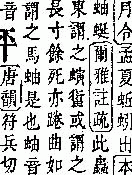 月令孟夏蚯蚓出本
蚰蜒爾雅註疏此蟲
東謂之螾或謂之
長寸餘死亦踡曲如
謂之馬蚰是也蚰音
音
平唐韻符兵切